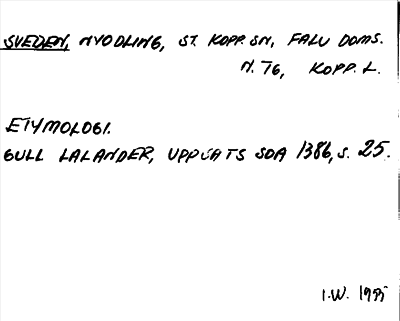 SVEDEN, NYODLING, ST. KOPP. SN, FALU DOMS.
N. 76, KOPP. L.
ETYMOLOGI.
GULL LALANDER, UPPSATS SOA 1386, S. 25.
I.W. 1995